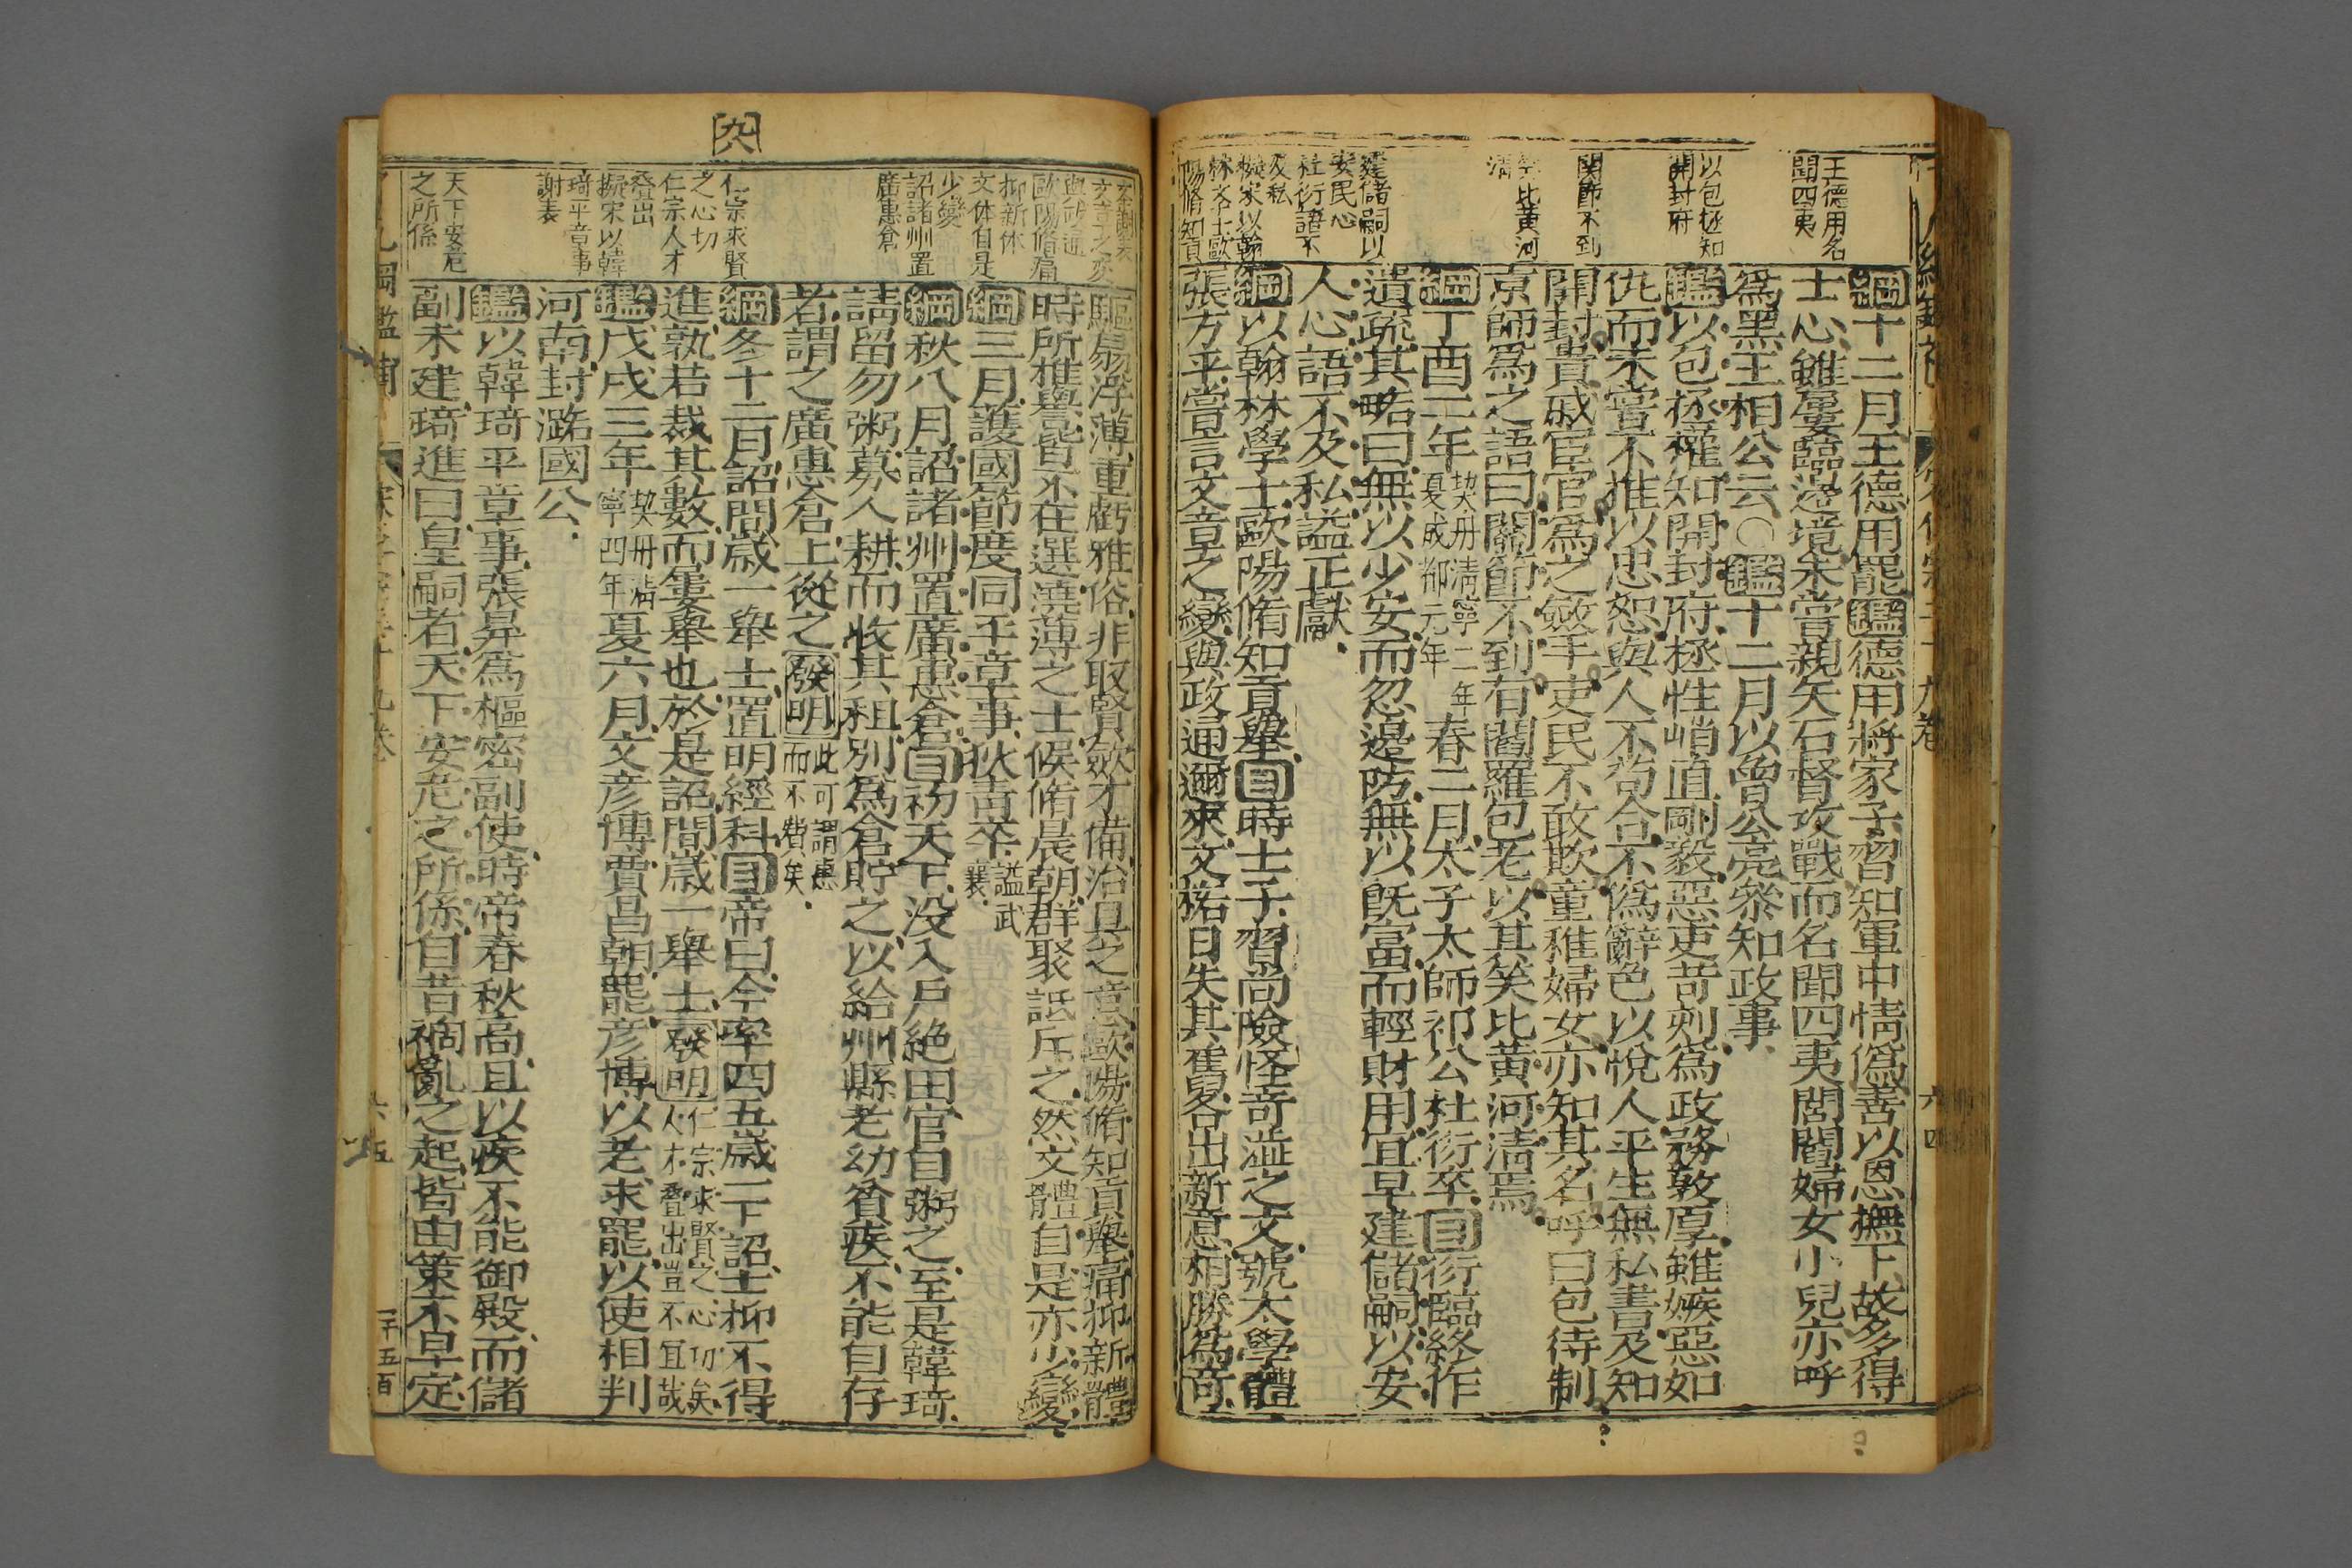 王德用名
聞四夷
以包拯知
開封府
関節不到
笑比黄河
清
建儲嗣以
安民心
杜衍語不
及私
擬宋以翰
林学士歐
陽脩知貢
綱十二月王德用罷鑑德用將家子習知軍中情僞善以恩撫下故多得
士心雖屢臨邊境未嘗親矢石督攻戰而名聞四夷閭閻婦女小兒亦呼
爲黑王相公云〇鑑十二月以曾公亮叅知政事
鑑以包拯權知開封府拯性峭直剛毅惡吏苛刻爲政務敦厚雖嫉惡如
仇而未嘗不推以忠恕與人不苟合不僞辭色以悅人平生無私書及知
開封貴戚宦官爲之斂手吏民不敢欺童稚婦女亦知其名呼曰包待制
京師爲之語曰關節不到有閻羅包老以其笑比黄河清焉
綱丁酉二年契丹清寧二年夏成都元年春二月太子太師祁公杜衍卒目衍臨終作
遺疏其略曰無以少安而忽邊防無以旣富而輕財用宜早建儲嗣以安
人心語不及私謚正獻
綱以翰林學士歐陽脩知貢舉目時士子習尚險怪奇澁之文號太學體
張方平嘗言文章之變與政通邇來文格日失其舊各出新意相勝爲奇
文章之变
與政通
歐陽脩痛
抑新体
文体自是
少變
詔諸州置
廣惠倉
仁宗求賢
之心切
仁宗人才
叠出
擬宋以韓
琦平章事
謝表
天下安危
之所係
驅扇浮薄重虧雅俗非取賢斂才備治具之意歐陽脩知貢舉痛抑新體
時所推譽皆不在選澆薄之士候脩晨朝群聚詆斥之然文體自是亦少變
綱三月護國節度同平章事狄青卒謚武襄
綱秋八月詔諸州置廣惠倉目初天下没入戶絶田官自粥之至是韓琦
請留勿粥募人耕而收其租別爲倉貯之以給州縣老幼貧疾不能自存
者謂之廣惠倉上從之發明此可謂惠而不費矣
綱冬十二月詔間歲一舉士置明經科目帝曰今率四五歲一下詔士抑不得
進孰若裁其數而屢舉也於是詔間歲一舉士發明仁宗求賢之心切矣人才叠出豈不宜哉
鑑戊戌三年契丹清寧四年夏六月文彦博賈昌朝罷彦博以老求罷以使相判
河南封潞國公
鑑以韓琦平章事張昇爲樞密副使時帝春秋高且以疾不能御殿而儲
副未建琦進曰皇嗣者天下安危之所係自昔禍亂之起皆由策不早定